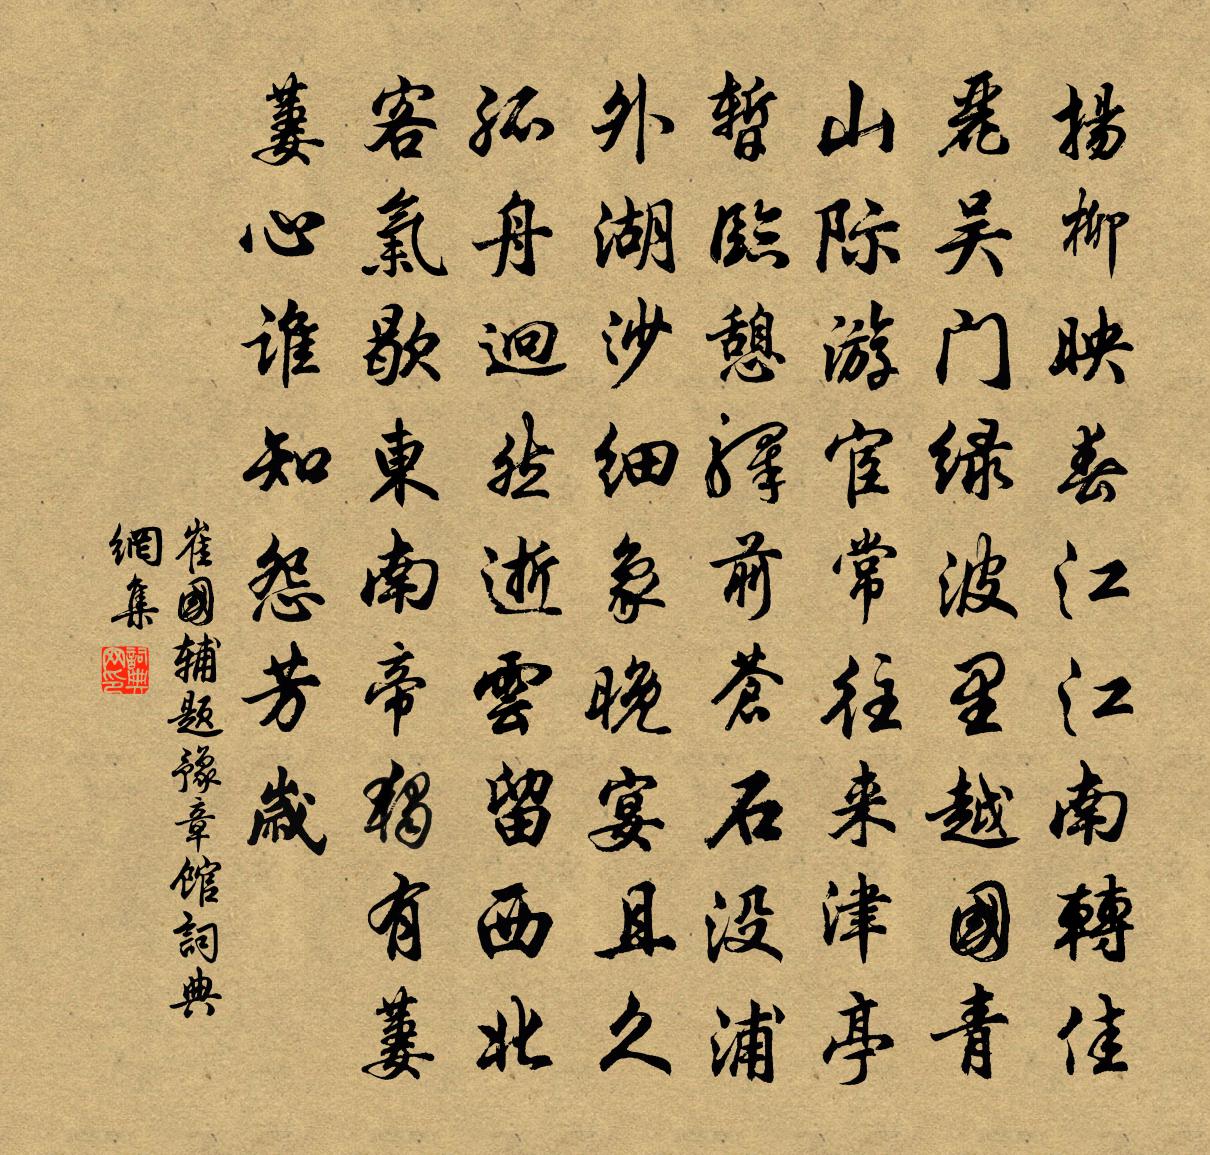 揚柳映春江江南轉佳
麗吴门绿波里越國青
山际游宦常往来津亭
暫臨憩驛前蒼石没浦
外湖沙细象晚宴且久
孤舟迥然逝雲留西北
客氣歇東南帝獨有萋
萋心谁知怨芳歲
崔國辅题豫章館詞典
網集
詞典网印